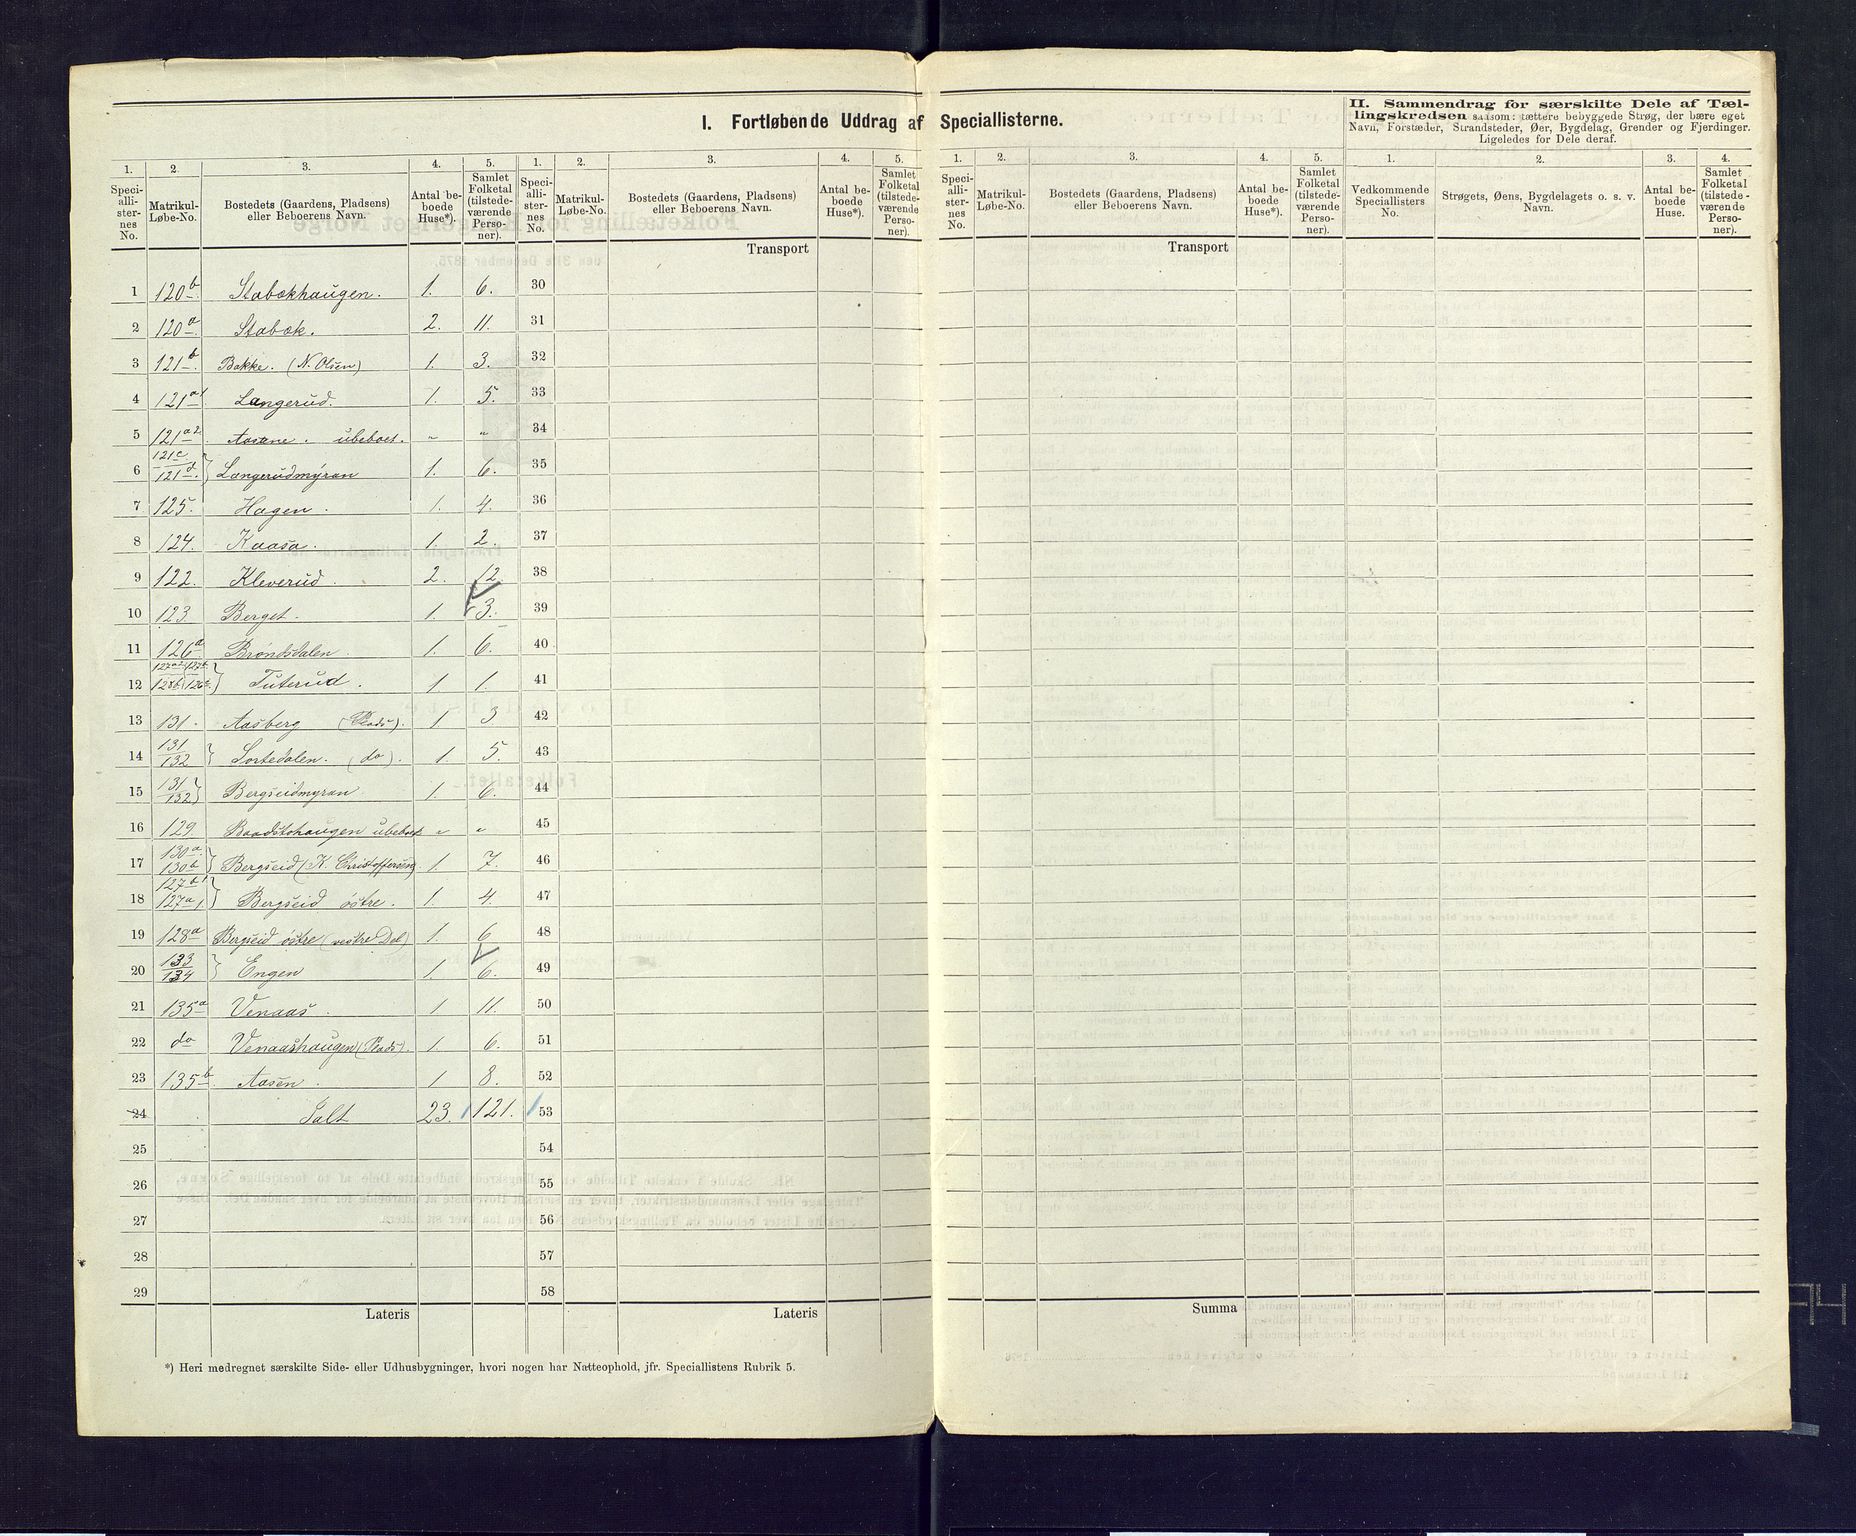 I. Fortløbende Uddrag af Speciallisterne.
II. Sammendrag for særskilte Dele af Tæl-
lingskredsen saasom: tættere bebyggede Strøg, der bære eget
Navn, Forstæder, Strandsteder, Øer, Bygdelag, Grender og Fjerdinger.
Ligeledes for Dele deraf.
1. 2. 3. 4. 5. 1. 2. 3. 4. 5. 1. 2. 3. 4. 5. 1. 2. 3. 4.
Speci-
alli-
ster-
nes
No.
Matrikul-
Løbe-No.
Bostedets (Gaardens, Pladsens)
eller Beboerens Navn.
Antal be-
boede
Huse*).
Samlet
Folketal
(tilstede-
værende
Perso-
ner).
Speci-
alli-
ster-
nes
No.
Matrikul-
Løbe-No.
Bostedets (Gaardens, Pladsens)
eller Beboerens Navn.
Antal be-
boede
Huse*).
Samlet
Folketal
(tilstede-
værende
Perso-
ner).
Speci-
alli-
ster-
nes
No.
Matrikul-
Løbe-No.
Bostedets (Gaardens, Pladsens)
eller Beboerens Navn.
Antal be-
boede
Huse*).
Samlet
Folketal
(tilstede-
værende
Perso-
ner).
Vedkommende
Speciallisters
No.
Strøgets, Øens, Bygdelagets o. s. v.
Navn.
Antal be-
boede
Huse.
Samlet
Folketal
(tilstede-
værende
Perso-
ner).
Transport Transport
1 120b. Stabækhaugen. 1. 6. 30
2 120a. Stabæk. 2. 11. 31
3 121b. Bakke. (N. Olsen) 1. 3. 32
4 121a1. Langerud. 1. 5. 33
5 121a2. Aasene. ubeboet. " " 34
6 121c 121d. } Langerudmyran 1. 6. 35
7 125. Hagen. 1. 4. 36
8 124. Kaasa. 1. 2. 37
9 122. Kleverud. 2. 12. 38
10 123 Berget. 1. 3. 39
11 126a Brøndsdalen. 1. 6. 40
12 } Tuterud. 1 1. 41
13 131. Aasberg (Plads). 1 3 42
14 131 132 } Sortedalen. (do). 1. 5. 43
15 131 132 } Bergseidmyran. 1. 6. 44
16 129 Baadstohaugen ubeboet " " 45
17 130a. 130b } Bergseid (K. Christoffersen) 1. 7. 46
18 127b1 127a1. } Bergseid østre. 1. 4. 47
19 128a Bergseid østre (vestre Del) 1. 6 48
20 133 134 } Engen 1. 6. 49
21 135a Venaas. 1 11. 50
22 do Venaashaugen (Plads). 1. 6. 51
23 135b. Aasen. 1 8. 52
24 Ialt 23. 121. 53
25 54
26 55
27 56
28 57
29 58
Lateris Lateris Summa
*) Heri medregnet særskilte Side- eller Udhusbygninger, hvori nogen har Natteophold, jfr. Speciallistens Rubrik 5.